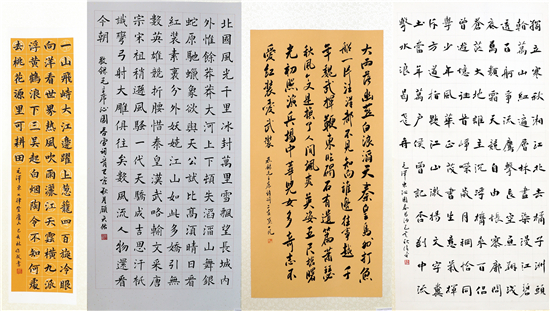 一山飛峙大江邊躍上葱蘢四百旋冷眼
向洋看世界熱風吹雨灑江天雲橫九派
浮黃鶴浪下三吳起白煙陶令不知何處
去桃花源里可耕田
北國風光千里冰封萬里雪飄望長城內
外惟餘莽莽大河上下頓失滔滔山舞銀
蛇原馳蠟象欲與天公試比高須晴日看
紅裝素裹分外妖嬈江山如此多嬌引無
數英雄競折腰惜秦皇漢武略輸文采唐
宗宋祖稍遜風騷一代天驕成吉思汗祇
識彎弓射大雕俱往矣數風流人物還看
今朝
大雨落幽燕白浪滔天秦皇島外打魚
船一片汪洋都不見知向誰邊往事越千
年魏武揮鞭東臨碣石有遺篇蕭瑟
秋風今又是換了人間颯爽英姿五尺槍曙
光初照演兵場中華兒女多奇志不
愛紅裝愛武裝
獨立寒秋湘江北去橘子洲頭
看萬山紅遍層林盡染漫江碧
透百舸爭流鷹擊長空魚翔淺
底萬類霜天競自由悵寥廓問
蒼茫大地誰主沉浮攜來百侶
曾遊憶往昔崢嶸歲月稠恰同
學少年風華正茂書生意氣揮
斥方遒指點江山激揚文字糞
土當年萬戶侯曾記否到中流
擊水浪遏飛舟